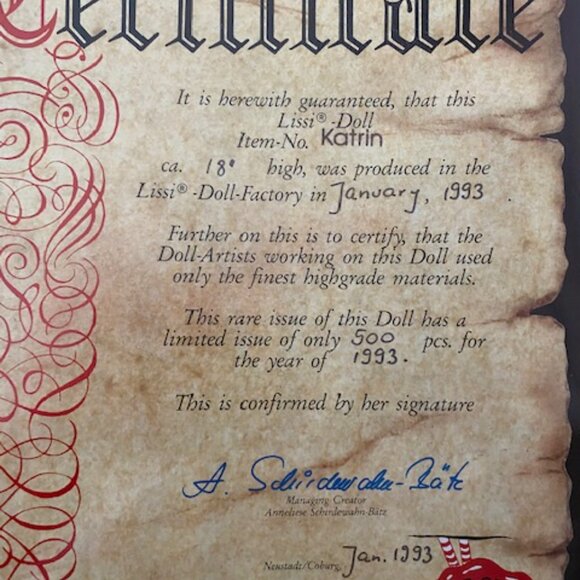 Certificate
It is herewith guaranteed, that this
Lissi®-Doll
Item-No. Katrin
ca. 18" high, was produced in the
Lissi®-Doll-Factory in January, 1993
Further on this is to certify, that the
Doll-Artists working on this Doll used
only the finest highgrade materials.
This rare issue of this Doll has a
limited issue of only 500 pcs. for
the year of 1993.
This is confirmed by her signature
A. Schirdewahn-Bätz
Managing Creator
Anneliese Schirdewahn-Bätz
Neustadt/Coburg, Jan. 1993